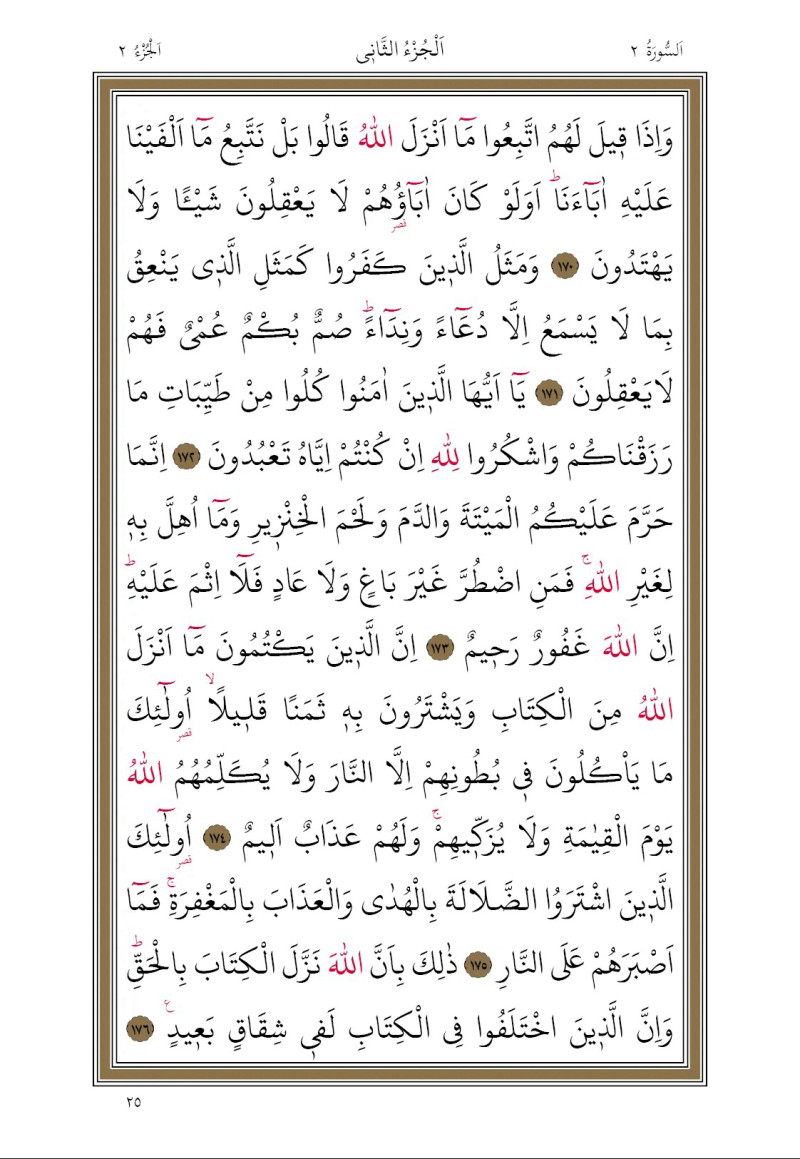 اَلسُّورَةُ ٢
اَلْجُزْءُ الثَّانٖى
اَلْجُزْءُ ٢
وَاِذَا قٖيلَ لَهُمُ اتَّبِعُوا مَٓا اَنْزَلَ اللّٰهُ قَالُوا بَلْ نَتَّبِعُ مَٓا اَلْفَيْنَا
عَلَيْهِ اٰبَٓاءَنَاۜ اَوَلَوْ كَانَ اٰبَٓاؤُ۬هُمْ لَا يَعْقِلُونَ شَيْـًٔا وَلَا
قصر
يَهْتَدُونَ ﴿١٧٠﴾ وَمَثَلُ الَّذٖينَ كَفَرُوا كَمَثَلِ الَّذٖى يَنْعِقُ
بِمَا لَا يَسْمَعُ اِلَّا دُعَٓاءً وَنِدَٓاءًۜ صُمٌّ بُكْمٌ عُمْىٌ فَهُمْ
لَا يَعْقِلُونَ ﴿١٧١﴾ يَٓا اَيُّهَا الَّذٖينَ اٰمَنُوا كُلُوا مِنْ طَيِّبَاتِ مَا
رَزَقْنَاكُمْ وَاشْكُرُوا لِلّٰهِ اِنْ كُنْتُمْ اِيَّاهُ تَعْبُدُونَ ﴿١٧٢﴾ اِنَّمَا
حَرَّمَ عَلَيْكُمُ الْمَيْتَةَ وَالدَّمَ وَلَحْمَ الْخِنْزٖيرِ وَمَٓا اُهِلَّ بِهٖ
لِغَيْرِ اللّٰهِۚ فَمَنِ اضْطُرَّ غَيْرَ بَاغٍ وَلَا عَادٍ فَلَٓا اِثْمَ عَلَيْهِۜ
اِنَّ اللّٰهَ غَفُورٌ رَحٖيمٌ ﴿١٧٣﴾ اِنَّ الَّذٖينَ يَكْتُمُونَ مَٓا اَنْزَلَ
اللّٰهُ مِنَ الْكِتَابِ وَيَشْتَرُونَ بِهٖ ثَمَنًا قَلٖيلًاۙ اُولٰٓئِكَ
قصر
مَا يَاْكُلُونَ فٖى بُطُونِهِمْ اِلَّا النَّارَ وَلَا يُكَلِّمُهُمُ اللّٰهُ
يَوْمَ الْقِيٰمَةِ وَلَا يُزَكّٖيهِمْۚ وَلَهُمْ عَذَابٌ اَلٖيمٌ ﴿١٧٤﴾ اُولٰٓئِكَ
قصر
الَّذٖينَ اشْتَرَوُا الضَّلَالَةَ بِالْهُدٰى وَالْعَذَابَ بِالْمَغْفِرَةِۚ فَمَٓا
اَصْبَرَهُمْ عَلَى النَّارِ ﴿١٧٥﴾ ذٰلِكَ بِاَنَّ اللّٰهَ نَزَّلَ الْكِتَابَ بِالْحَقِّۜ
وَاِنَّ الَّذٖينَ اخْتَلَفُوا فِى الْكِتَابِ لَفٖى شِقَاقٍ بَعٖيدٍ ع ﴿١٧٦﴾
٢٥